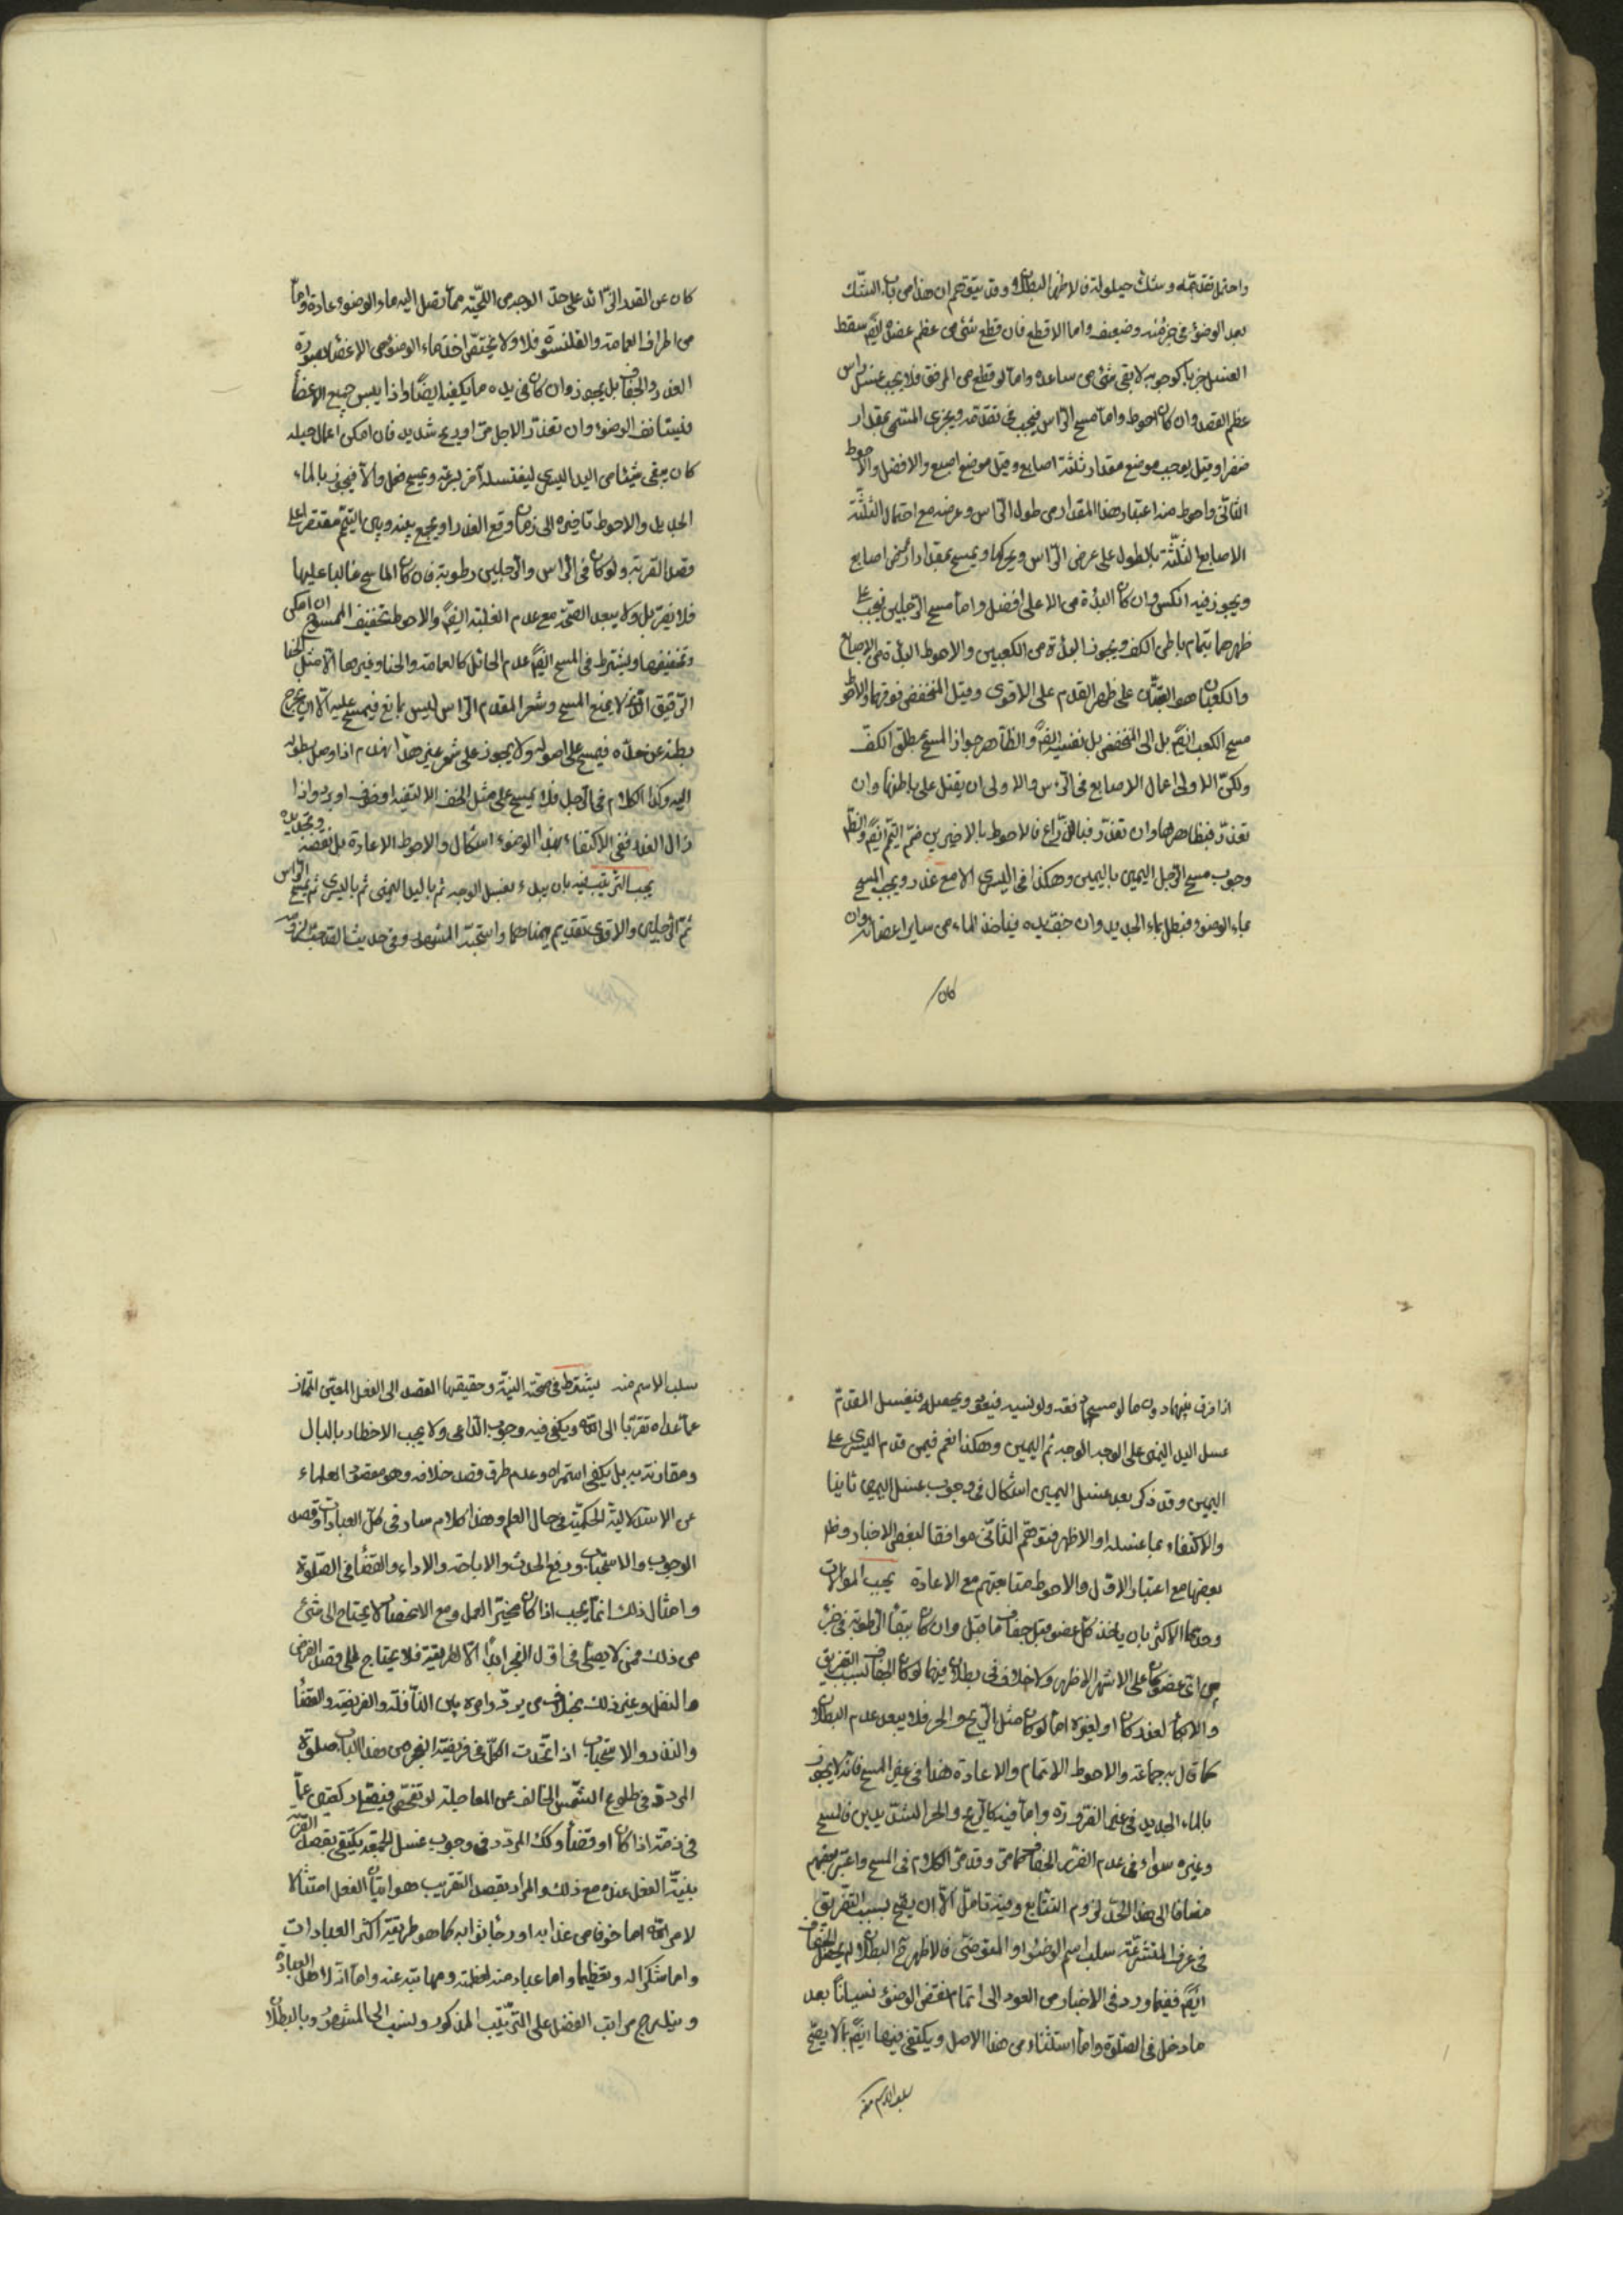 واحتمل تقدمه وشك حيلولة فالاظهر البطلان وقد يتوهم ان هذا من باب الشك
بعد الوضوء في جزء منه وضعيف واما الاقطع فان قطع شئ من عظم عضده ايضا سقط
الغسل جزما كوجوبه لا بقى شئ من ساعده واما لو قطع من المرفق فلا يجب غسل راس
عظم العضد وان كان احوط واما مسح الراس فيجب في مقدمه ويجزي المسمى بمقدار
ظفر او وقيل يوجب موضع مقدار ثلثة اصابع وقيل موضع اصبع والافضل والاحوط
الثاني واحوط منه اعتبار هذا المقدار من طول الراس وعرضه مع احتمال الثلثة
الاصابع الثلثة بالطول على عرض الراس ويحركها ويمسح بمقدار اصابع
ويجوز فيه النكس وان كان البدأة من الاعلى افضل واما مسح الرجلين فيجب على
ظهرهما بتمام باطن الكف ويجوز البدأة من الكعبين والاحوط البدأة من الاصابع
والكعبان هو القبتان على ظهر القدم على الاقوى وقيل المنخفض فوقهما والاحوط
مسح الكعب ايضا بل الى المنخفض بل نفسه ايضا والظاهر جواز المسح بمطلق الكف
ولكن الاولى اعمال الاصابع في الراس والاولى ان يقتصر على باطنها وان
تعذر فبظاهرها وان تعذر فبالذراع فالاحوط بالاخيرين ضم التيمم ايضا والظاهر
وجوب مسح الرجل اليمين باليمين وهكذا في اليسرى الا مع عذر ويجب المسح
بماء الوضوء فيبطل بماء الجديد وان جف يده فياخذ الماء من ساير اعضائه وان
كان
كان عن القدر الزائد على حد الوجه من اللحية مما يصل اليه ماء الوضوء عادة واما
من اطراف العمامة والقلنسوة فلا ولا يختص اخذ ماء الوضوء من الاعضاء بصورة
العذر والجفاف بل يجوز وان كان في يده ما يكفيه ايضا واذا يبس جميع الاعضاء
فيستانف الوضوء وان تعذر لاجل حر او ريح شديد فان امكن اعمال حيلة
كان يبقى شيئا من اليد اليسرى ليغتسله اخر بسرعة ويمسح فعل والا فيجوز بالماء
الجديد والاحوط تاخيره الى زمان رفع العذر او يجمع بينه وبين التيمم مقتصرا على
قصد القربة ولو كان في الراس والرجلين رطوبة فان كان الماسح غالبا عليها
فلا يضر بل ولا يبعد الصحة مع عدم الغلبة ايضا والاحوط تخفيف الممسوح ان امكن
وتخفيفها ويشترط في المسح ايضا عدم الحائل كالعمامة والحنا وغيرها الا مثل الحنا
الرقيق الذي لا يمنع المسح وشعر المقدم الراس ليس بمانع فيمسح عليه الا ان يخرج
بطنه عن حده فيمسح على اصوله ولا يجوز على شعر غير هذا المقدم اذا وصل بطوله
اليه وكذا الكلام في الرجل فلا يمسح على مثل الخف الا لتقية او خوف او برد واذا
زال العذر ففي الاكتفاء بهذا الوضوء اشكال والاحوط الاعادة بل نقضه وتجديده
يجب الترتيب فيه بان يبدء بغسل الوجه ثم باليد اليمنى ثم باليسرى ثم يمسح الراس
ثم الرجلين والاقوى تقديم يمناهما واستحبه المشهور وفي حديث
اذا فرق بينهما دون ما لو مسحهما دفعة ولو نسيه فيعود ويحصله فيغسل المقدم
غسل اليد اليمنى على الوجه الوجه ثم اليمين وهكذا نعم فيمن قدم اليسرى على
اليمين وقد ذكر بعد غسل اليمين اشكال في وجوب غسل اليمين ثانيا
والاكتفاء بما غسله او الاظهر فتوهم الثاني موافقا لبعض الاخبار وظاهر
بعضها مع اعتبار الاول والاحوط متابعتهم مع الاعادة يجب الموالاة
وحدها الاكثر بان ياخذ كل عضو قبل جفاف ما قبل وان كان ببقاء الرطوبة في جزء
من اي عضو كان على الاشهر الاظهر ولا خلاف في بطلان فيما لو كان الجفاف بسبب التفريق
والا كان لعذر كان او لغيره اما لو كان مثل الريح والحر فلا يبعد عدم البطلان
كما قال به جماعة والاحوط الاتمام والاعادة هذا في غير المسح فانه لا يجوز
بالماء الجديد في غير الضرورة واما فيه كالريح والحر الشديدين فالمسح
وغيره سواء في عدم الضرر الجفاف كما مر وقد مر الكلام في المسح واعتبر بعضهم
مضافا الى هذا الحد لزوم التتابع وفيه تامل الا ان يصح بسبب التفريق
في عرف المتشرعة سلب اسم الوضوء او المتوضئ فالاظهر ثم البطلان ولم يحصل الجفاف
ايضا ففيما ورد في الاخبار من العود الى اتمام نقض الوضوء نسيانا بعد
ما دخل في الصلوة واما استثناء من هذا الاصل ويكتفى فيها ايضا بما لا يصح
سلب الاسم منه
سلب الاسم منه يشترط في صحته النية وحقيقتها القصد الى الفعل المعين الممتاز
عما عداه تقربا الى الله ويكفي فيه وجوب الداعي ولا يجب الاخطار بالبال
ومقارنته به بل يكفي استمراره وعدم طرق قصد خلافه وهو مقصود العلماء
عن الاستدامة الحكمية في حال العلم وهذا الكلام سار في كل العبادات وقصد
الوجوب والاستحباب ورفع الحدث والاباحة والاداء والقضاء في الصلوة
وامثال ذلك انما يجب اذا كان مميز العمل ومع الانحصار لا يحتاج الى شئ
من ذلك فمن لا يصلي في اول الفجر ابدا الا الفريضة فلا يحتاج الى قصد الفرض
والنفل وغير ذلك بخلاف من يردد امره بين النافلة والفريضة والقضاء
والنذر والاستحباب اذا اتحدت الكل في فريضة الفجر من هذا الباب صلوة
المردد في طلوع الشمس الخائف عن المعاجلة لو تفحص فيصلي ركعتين عما
في ذمته اداء كان او قضاء وكك المردد في وجوب غسل الجمعة يكتفي بقصد القربة
بنية الفعل عنده مع ذلك والمراد بقصد التقريب هو اتيان الفعل امتثالا
لامر الله اما خوفا من عذابه او رجاء ثوابه كما هو طريقة اكثر العبادات
واما شكرا له وتعظيما واما عبادة منه لعظمته ومهابته عنه واما انه لاهل العبادة
ويندرج مراتب الفضل على الترتيب المذكور ونسب الى المشهور وبالبطلان